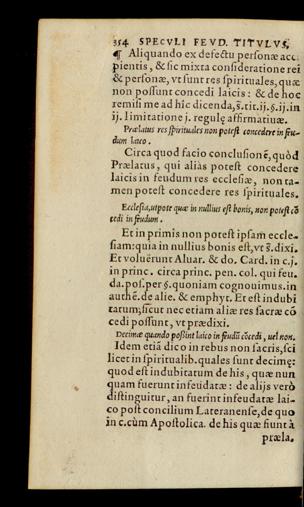 354 SPECVLI FEVD. TITVLVS,
¶ Aliquando ex defectu personæ acci
pientis, & sic mixta consideratione rei
& personæ, vt sunt res spirituales, quæ
non possunt concedi laicis: & de hoc
remisi me ad hîc dicenda, §. tit. ij. §. ij. in
ij. limitatione j. regulę affirmatiuæ.
Prælatus res spirituales non potest concedere in feu-
dum laico.
Circa quod facio conclusionẽ, quòd
Prælatus, qui aliàs potest concedere
laicis in feudum res ecclesiæ, non ta-
men potest concedere res spirituales.
Ecclesia, utpote quæ in nullius est bonis, non potest cõ
cedi in feudum.
Et in primis non potest ipsam eccle-
siam: quia in nullius bonis est, vt §. dixi.
Et voluêrunt Aluar. & do. Card. in c. j.
in princ. circa princ. pen. col. qui feu.
da. pos. per §. quoniam cognouimus. in
authẽ. de alie. & emphyt. Et est indubi
tatum; sicut nec etiam aliæ res sacræ cõ
cedi possunt, vt prædixi.
Decimæ quando possint laico in feudũ cõcedi, uel non.
Idem etiã dico in rebus non sacris, sci
licet in spiritualib. quales sunt decimę:
quod est indubitatum de his, quæ nun
quam fuerunt infeudatæ: de alijs verò
distinguitur, an fuerint infeudatæ lai-
co post concilium Lateranense, de quo
in c. cùm Apostolica. de his quæ fiunt à
præla.